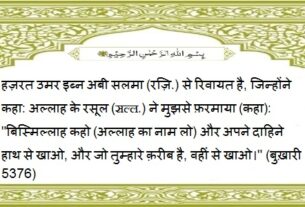 بِسْمِ اللهِ الرَّحْمٰنِ الرَّحِيْمِ
हज़रत उमर इब्न अबी सलमा (रज़ि.) से रिवायत है, जिन्होंने
कहा: अल्लाह के रसूल (सल्ल.) ने मुझसे फ़रमाया (कहा):
"बिस्मिल्लाह कहो (अल्लाह का नाम लो) और अपने दाहिने
हाथ से खाओ, और जो तुम्हारे क़रीब है, वहीं से खाओ।" (बुख़ारी
5376)